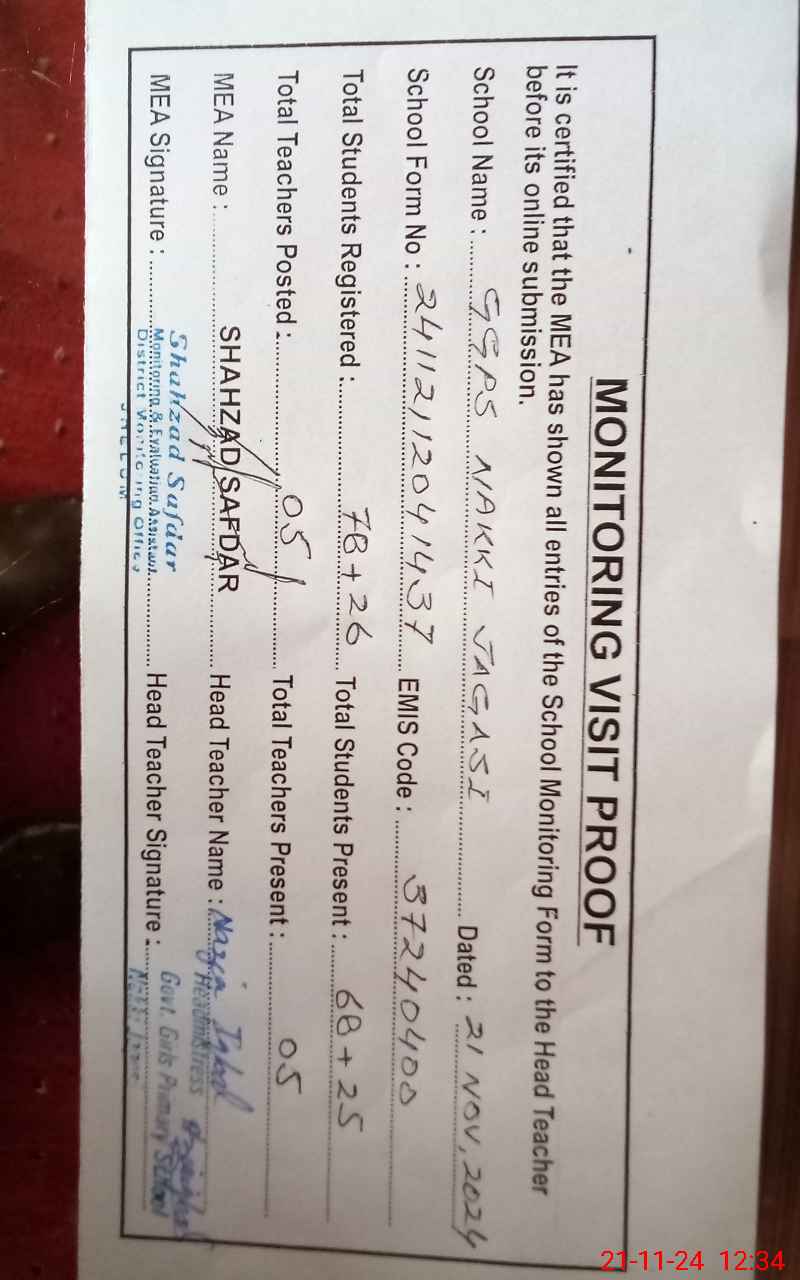 MONITORING VISIT PROOF
It is certified that the MEA has shown all entries of the School Monitoring Form to the Head Teacher
before its online submission.
School Name : GGPS NAKKI JAGASI Dated : 21 NOV, 2024
School Form No : 24112112041437 EMIS Code : 37240400
Total Students Registered : 78+26 Total Students Present : 68+25
Total Teachers Posted : 05 Total Teachers Present : 05
MEA Name : SHAHZAD SAFDAR Head Teacher Name : Nazia Iqbal
Headmistress
MEA Signature : Head Teacher Signature :
Govt. Girls Primary School
Shahzad Safdar
Monitoring & Evaluation Assistant
District Monitoring Office
JHELUM
21-11-24 12:34